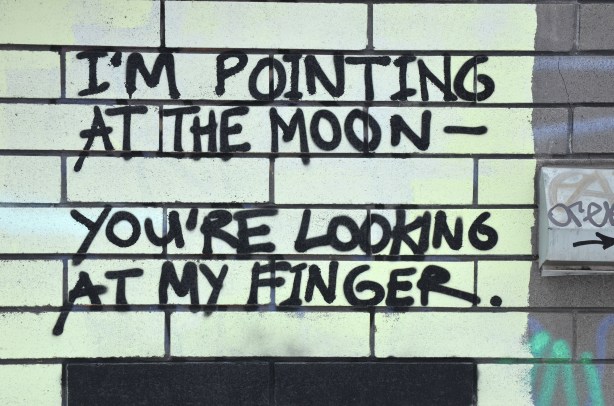 I'M POINTING
AT THE MOON—
YOU'RE LOOKING
AT MY FINGER.